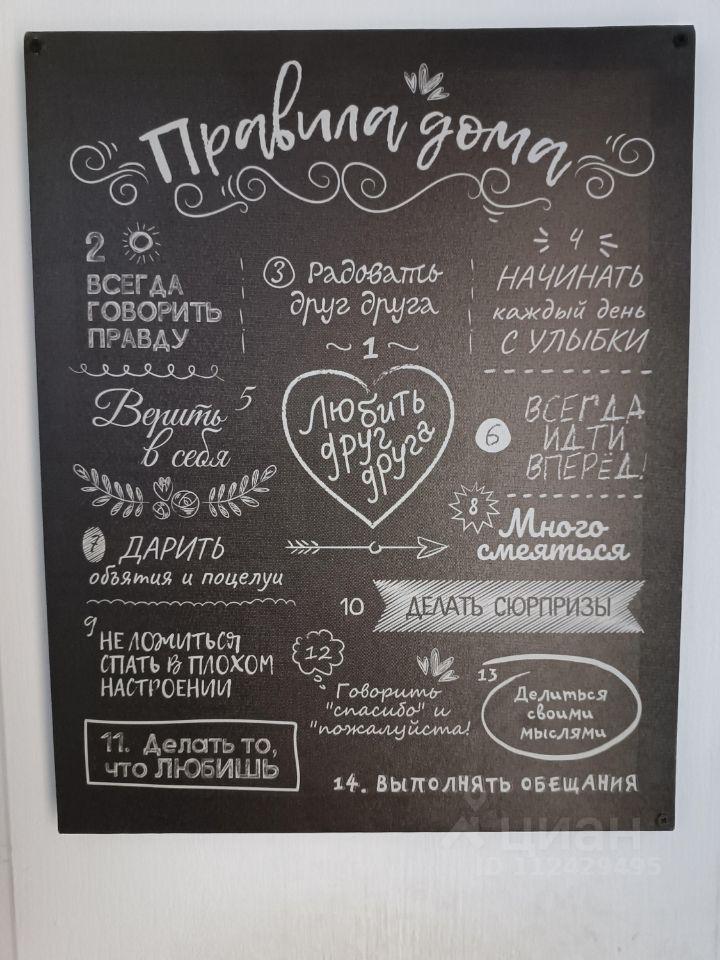 Правила дома
2
ВСЕГДА
ГОВОРИТЬ
ПРАВДУ
3 Радовать
друг друга
4
НАЧИНАТЬ
каждый день
С УЛЫБКИ
1
Любить
друг
друга
Верить 5
в себя
6
ВСЕГДА
ИДТИ
ВПЕРЁД!
7 ДАРИТЬ
объятия и поцелуи
8
Много
смеяться
10 ДЕЛАТЬ СЮРПРИЗЫ
9
НЕ ЛОЖИТЬСЯ
СПАТЬ В ПЛОХОМ
НАСТРОЕНИИ
12
Говорить
"спасибо" и
"пожалуйста!
13
Делиться
своими
мыслями
11. Делать то,
что ЛЮБИШЬ
14. ВЫПОЛНЯТЬ ОБЕЩАНИЯ
циан
ID 112429495